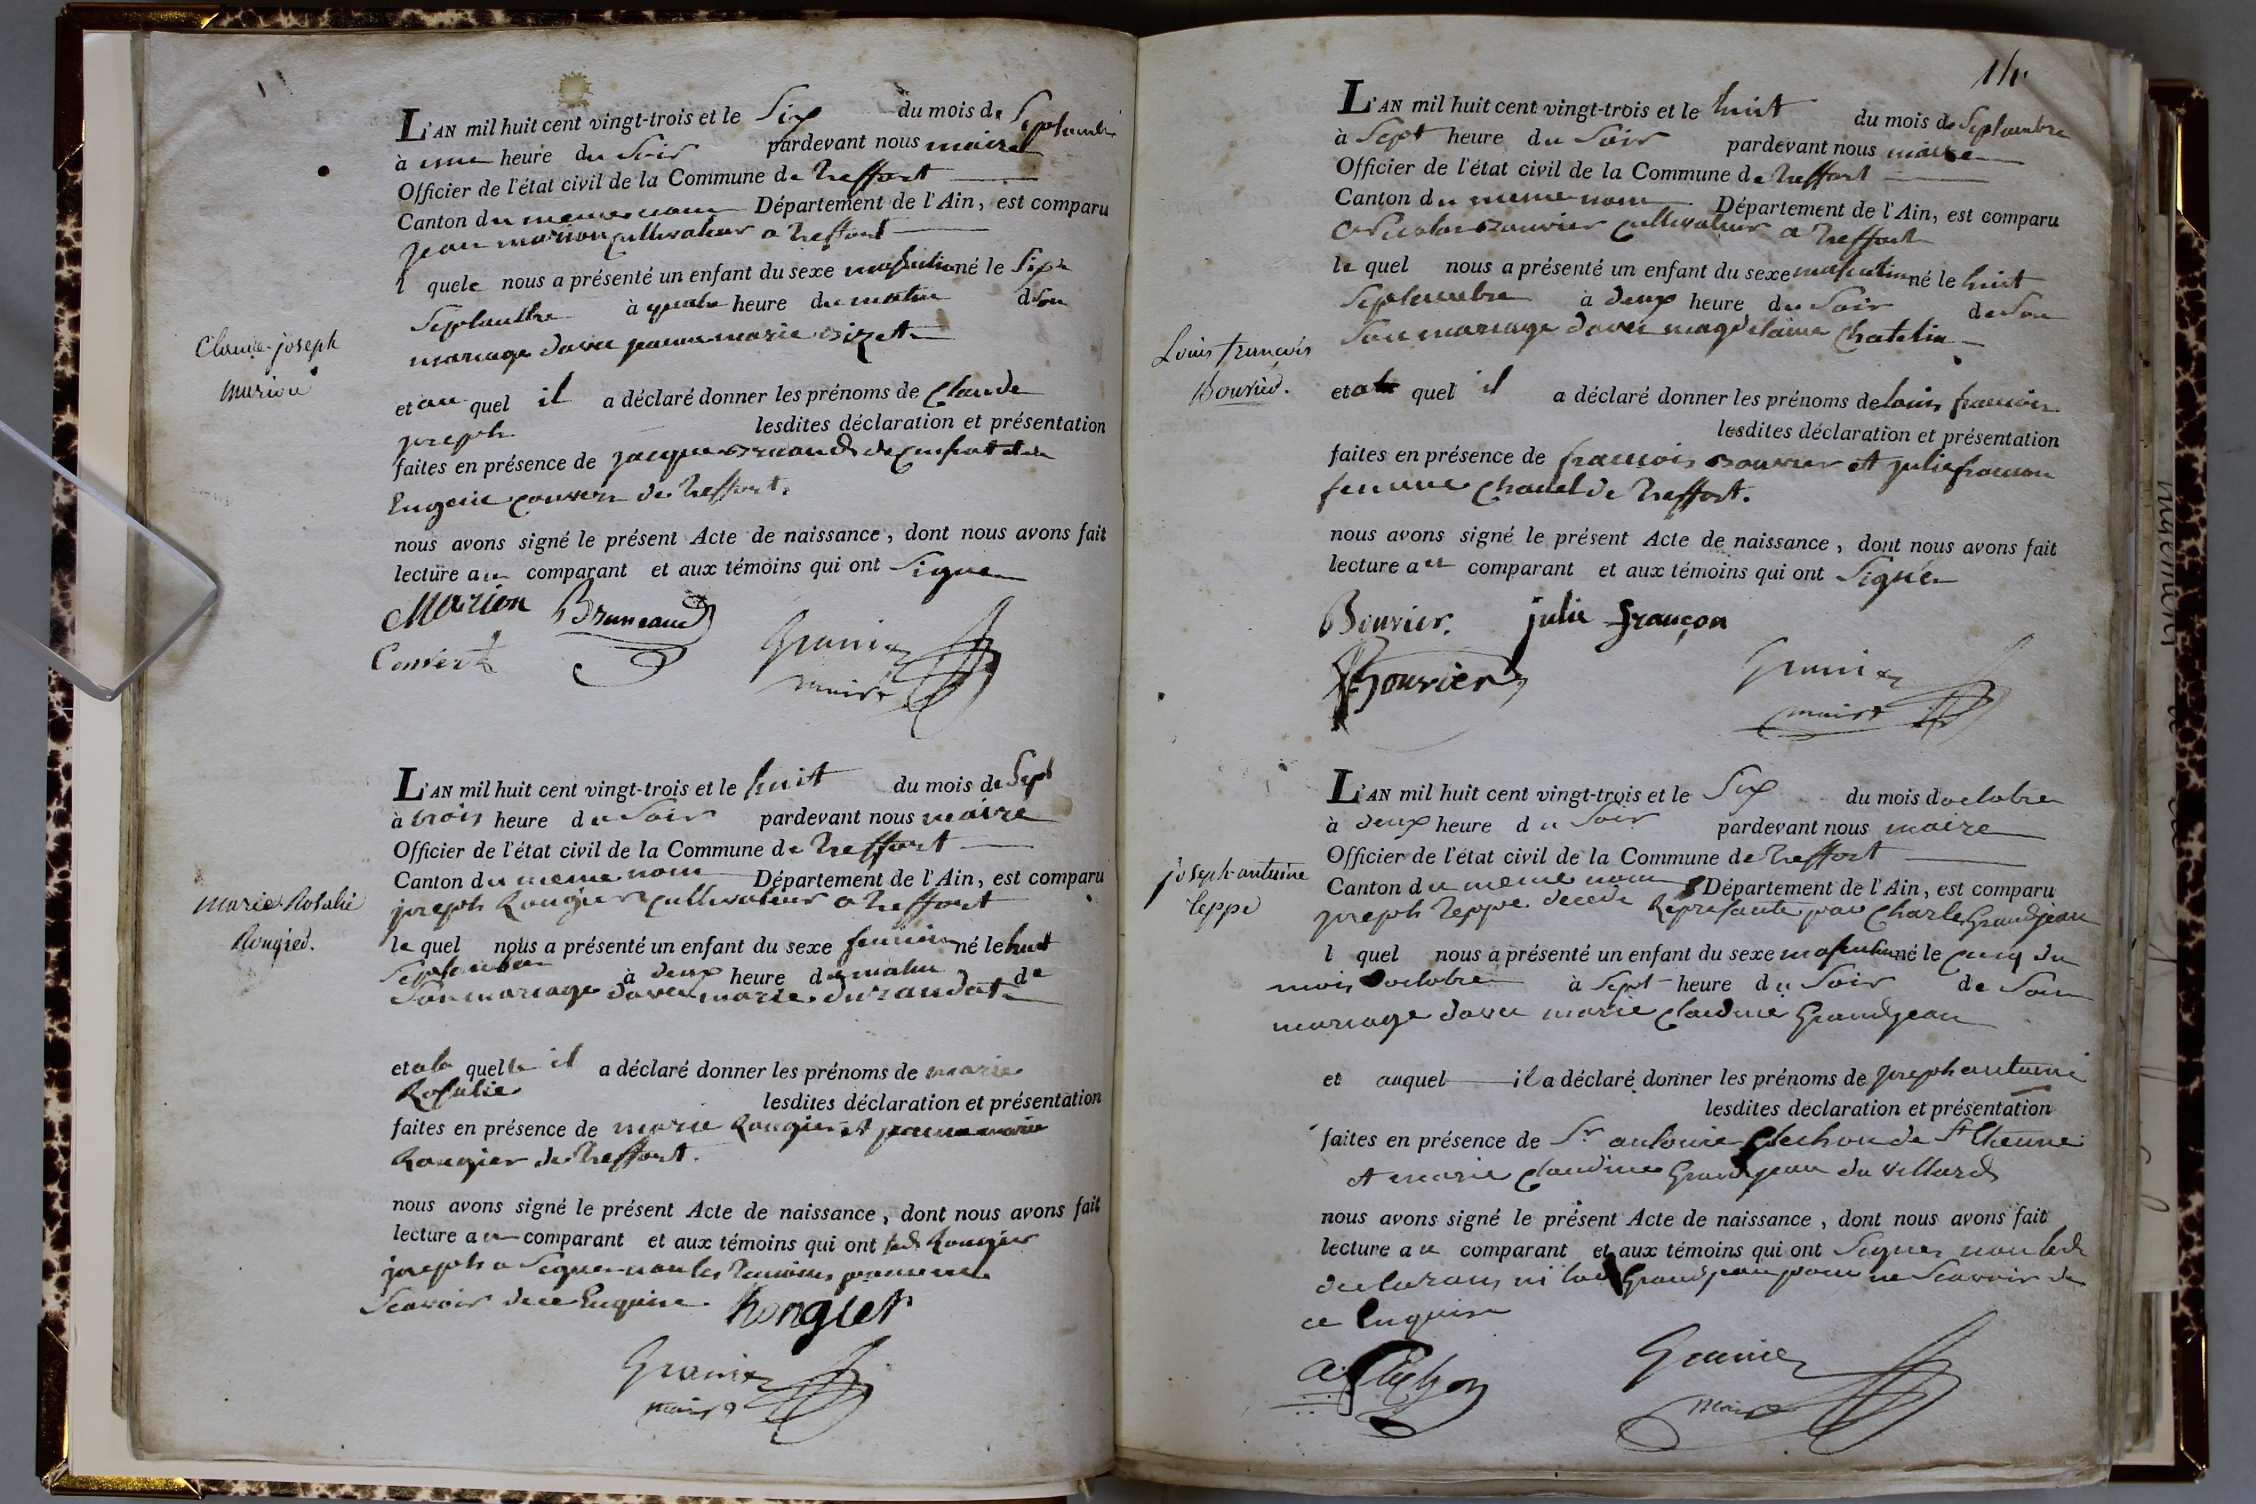 L'AN mil huit cent vingt-trois et le Six du mois de Septembre
à une heure du Soir pardevant nous maire
Officier de l'état civil de la Commune de Treffort
Canton du meme nom Département de l'Ain, est comparu
jean marion cultivateur a Treffort
l quele nous a présenté un enfant du sexe masculin né le Six
Septembre à quatre heure du matin d Son
mariage davec jeanne marie
Claude-joseph
marion
et au quel il a déclaré donner les prénoms de Claude
joseph lesdites déclaration et présentation
faites en présence de jacques de
Eugenie convert de Treffort.
nous avons signé le présent Acte de naissance, dont nous avons fait
lecture au comparant et aux témoins qui ont Signe
Marion Bruneaud
Convert Granier
maire
L'AN mil huit cent vingt-trois et le huit du mois de Sept
à trois heure du Soir pardevant nous maire
Officier de l'état civil de la Commune de Treffort
Canton du meme nom Département de l'Ain, est comparu
joseph Rougier cultivateur a Treffort
Marie Rosalie
Rougier.
le quel nous a présenté un enfant du sexe feminin né le huit
Septembre à deux heure du matin de
Son mariage davec marie durandat
et a la quelle il a déclaré donner les prénoms de marie
Rosalie lesdites déclaration et présentation
faites en présence de marie Rougier et jeanne marie
Rougier de Treffort.
nous avons signé le présent Acte de naissance, dont nous avons fait
lecture au comparant et aux témoins qui ont led Rougier
joseph a Signe non les temoins pour ne
Scavoir de ce Enquise Rongier
Granier
maire
14
L'AN mil huit cent vingt-trois et le huit du mois de Septembre
à Sept heure du Soir pardevant nous maire
Officier de l'état civil de la Commune de Treffort
Canton du meme nom Département de l'Ain, est comparu
Bouvier cultivateur a Treffort
le quel nous a présenté un enfant du sexe masculin né le huit
Septembre à deux heure du Soir de Son
Son mariage davec magdelaine Chatelin
Louis françois
Bouvier.
et quel il a déclaré donner les prénoms de louis francois
lesdites déclaration et présentation
faites en présence de francois Bouvier et julie francon
femme Chanel de Treffort.
nous avons signé le présent Acte de naissance, dont nous avons fait
lecture au comparant et aux témoins qui ont Signé
Bouvier. julie françon
Bouvier Granier
maire
L'AN mil huit cent vingt-trois et le Six du mois doctobre
à deux heure du Soir pardevant nous maire
Officier de l'état civil de la Commune de Treffort
Canton du meme nom Département de l'Ain, est comparu
joseph-antoine
Teppe
joseph Teppe decede Represante par Charle Grandjean
l quel nous a présenté un enfant du sexe masculin né le cinq du
mois doctobre à Sept heure du Soir de Son
mariage davec marie claudine Grandjean
et auquel il a déclaré donner les prénoms de joseph antoine
lesdites déclaration et présentation
faites en présence de Sr antoine de St Etienne
et marie claudine Grandjean du villard
nous avons signé le présent Acte de naissance, dont nous avons fait
lecture au comparant et aux témoins qui ont Signer non led
declarans ni Grandjean pour ne Scavoir de
ce Enquise
Granier
maire